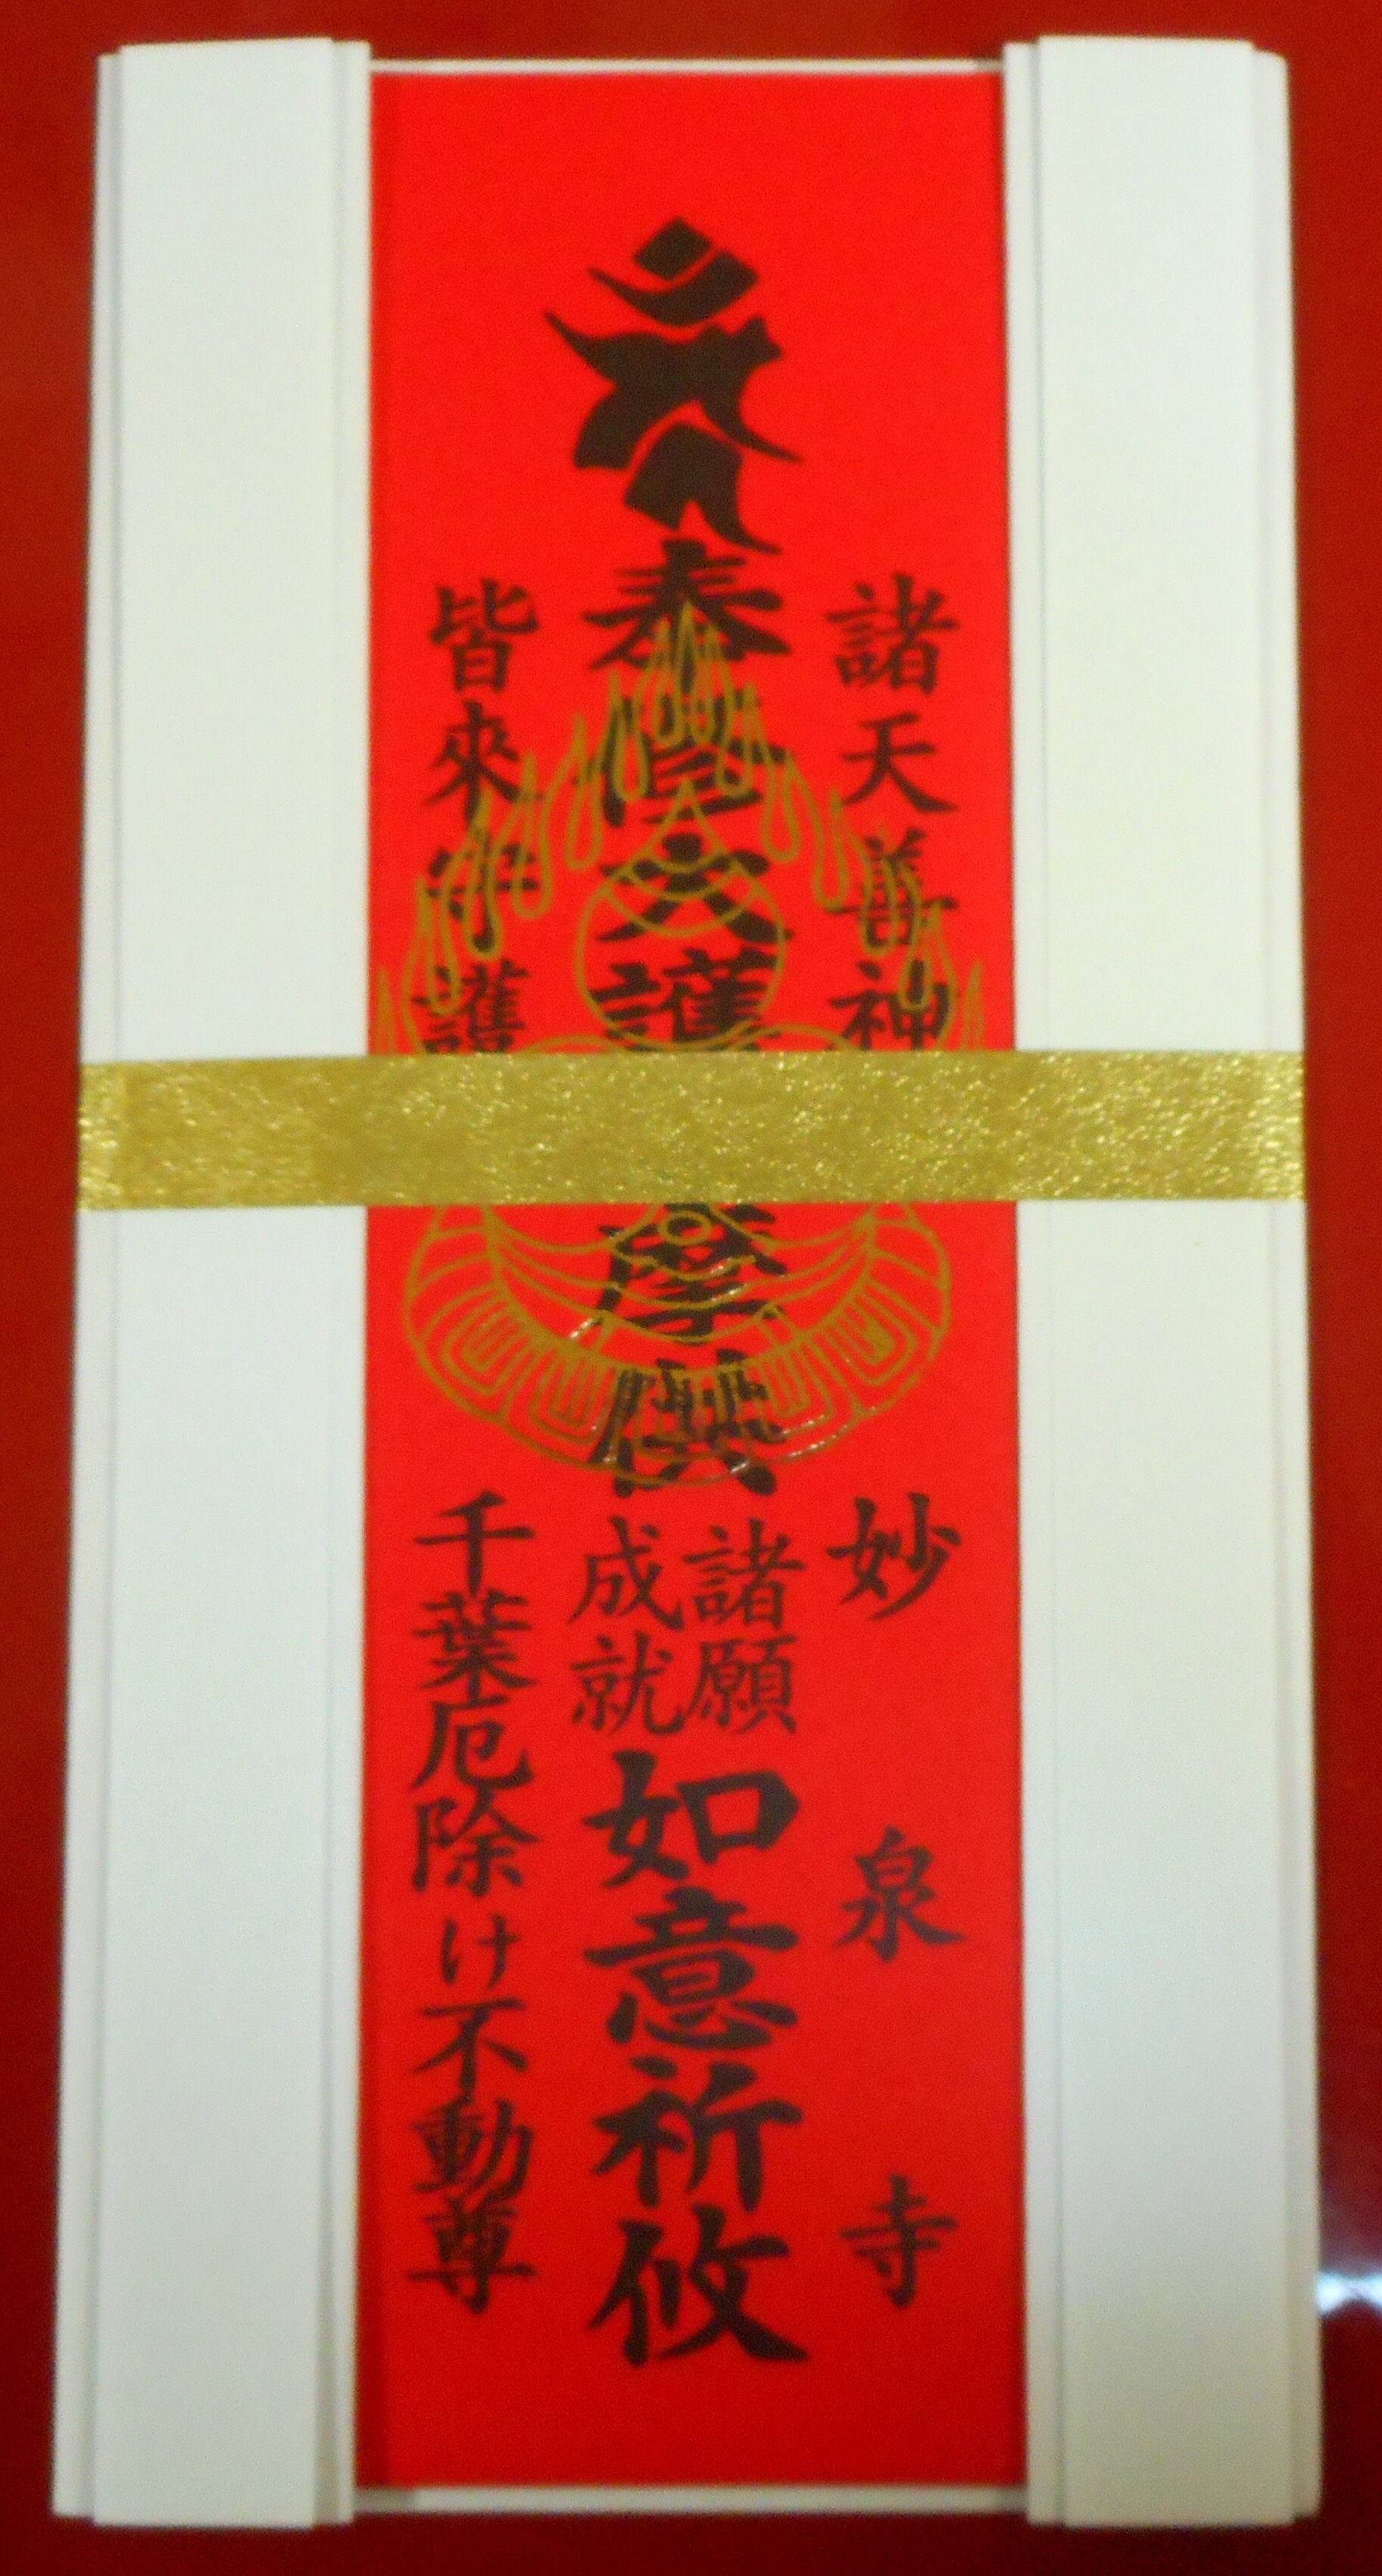 諸天善神
妙泉寺
𑖮𑖿𑖦𑖯𑖽
奉修大護摩供
諸願
成就
如意祈攸
皆來守護
千葉厄除け不動尊